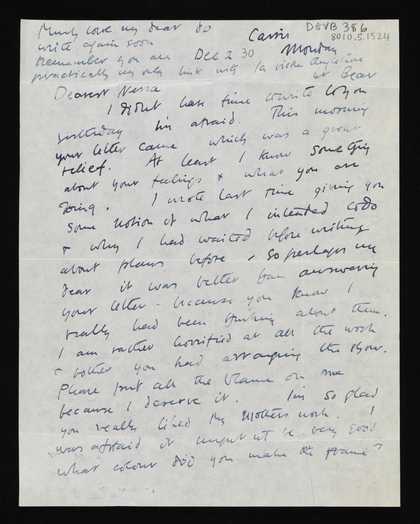 Much love my dear do
write again soon
Remember you are
practically my only link with la vieille Angleterre
Cassis
Monday
Dec 2 30
DGVB 386
8010.5.1524
Dearest Nessa
I didn't have time to write to you
yesterday I'm afraid. This morning
your letter came which was a great
relief. At least I know something
about your feelings & what you are
doing. I wrote last time giving you
some notion of what I intended to do
& why I had waited before writing
about plans before, so perhaps my
dear it was better than answering
your letter - because you know I
really had been thinking about them.
I am rather horrified at all the work
& bother you had arranging the show.
Please put all the blame on me
because I deserve it. I'm so glad
you really liked my Mothers work. I
was afraid it might not be very good
what colour did you make the frame?